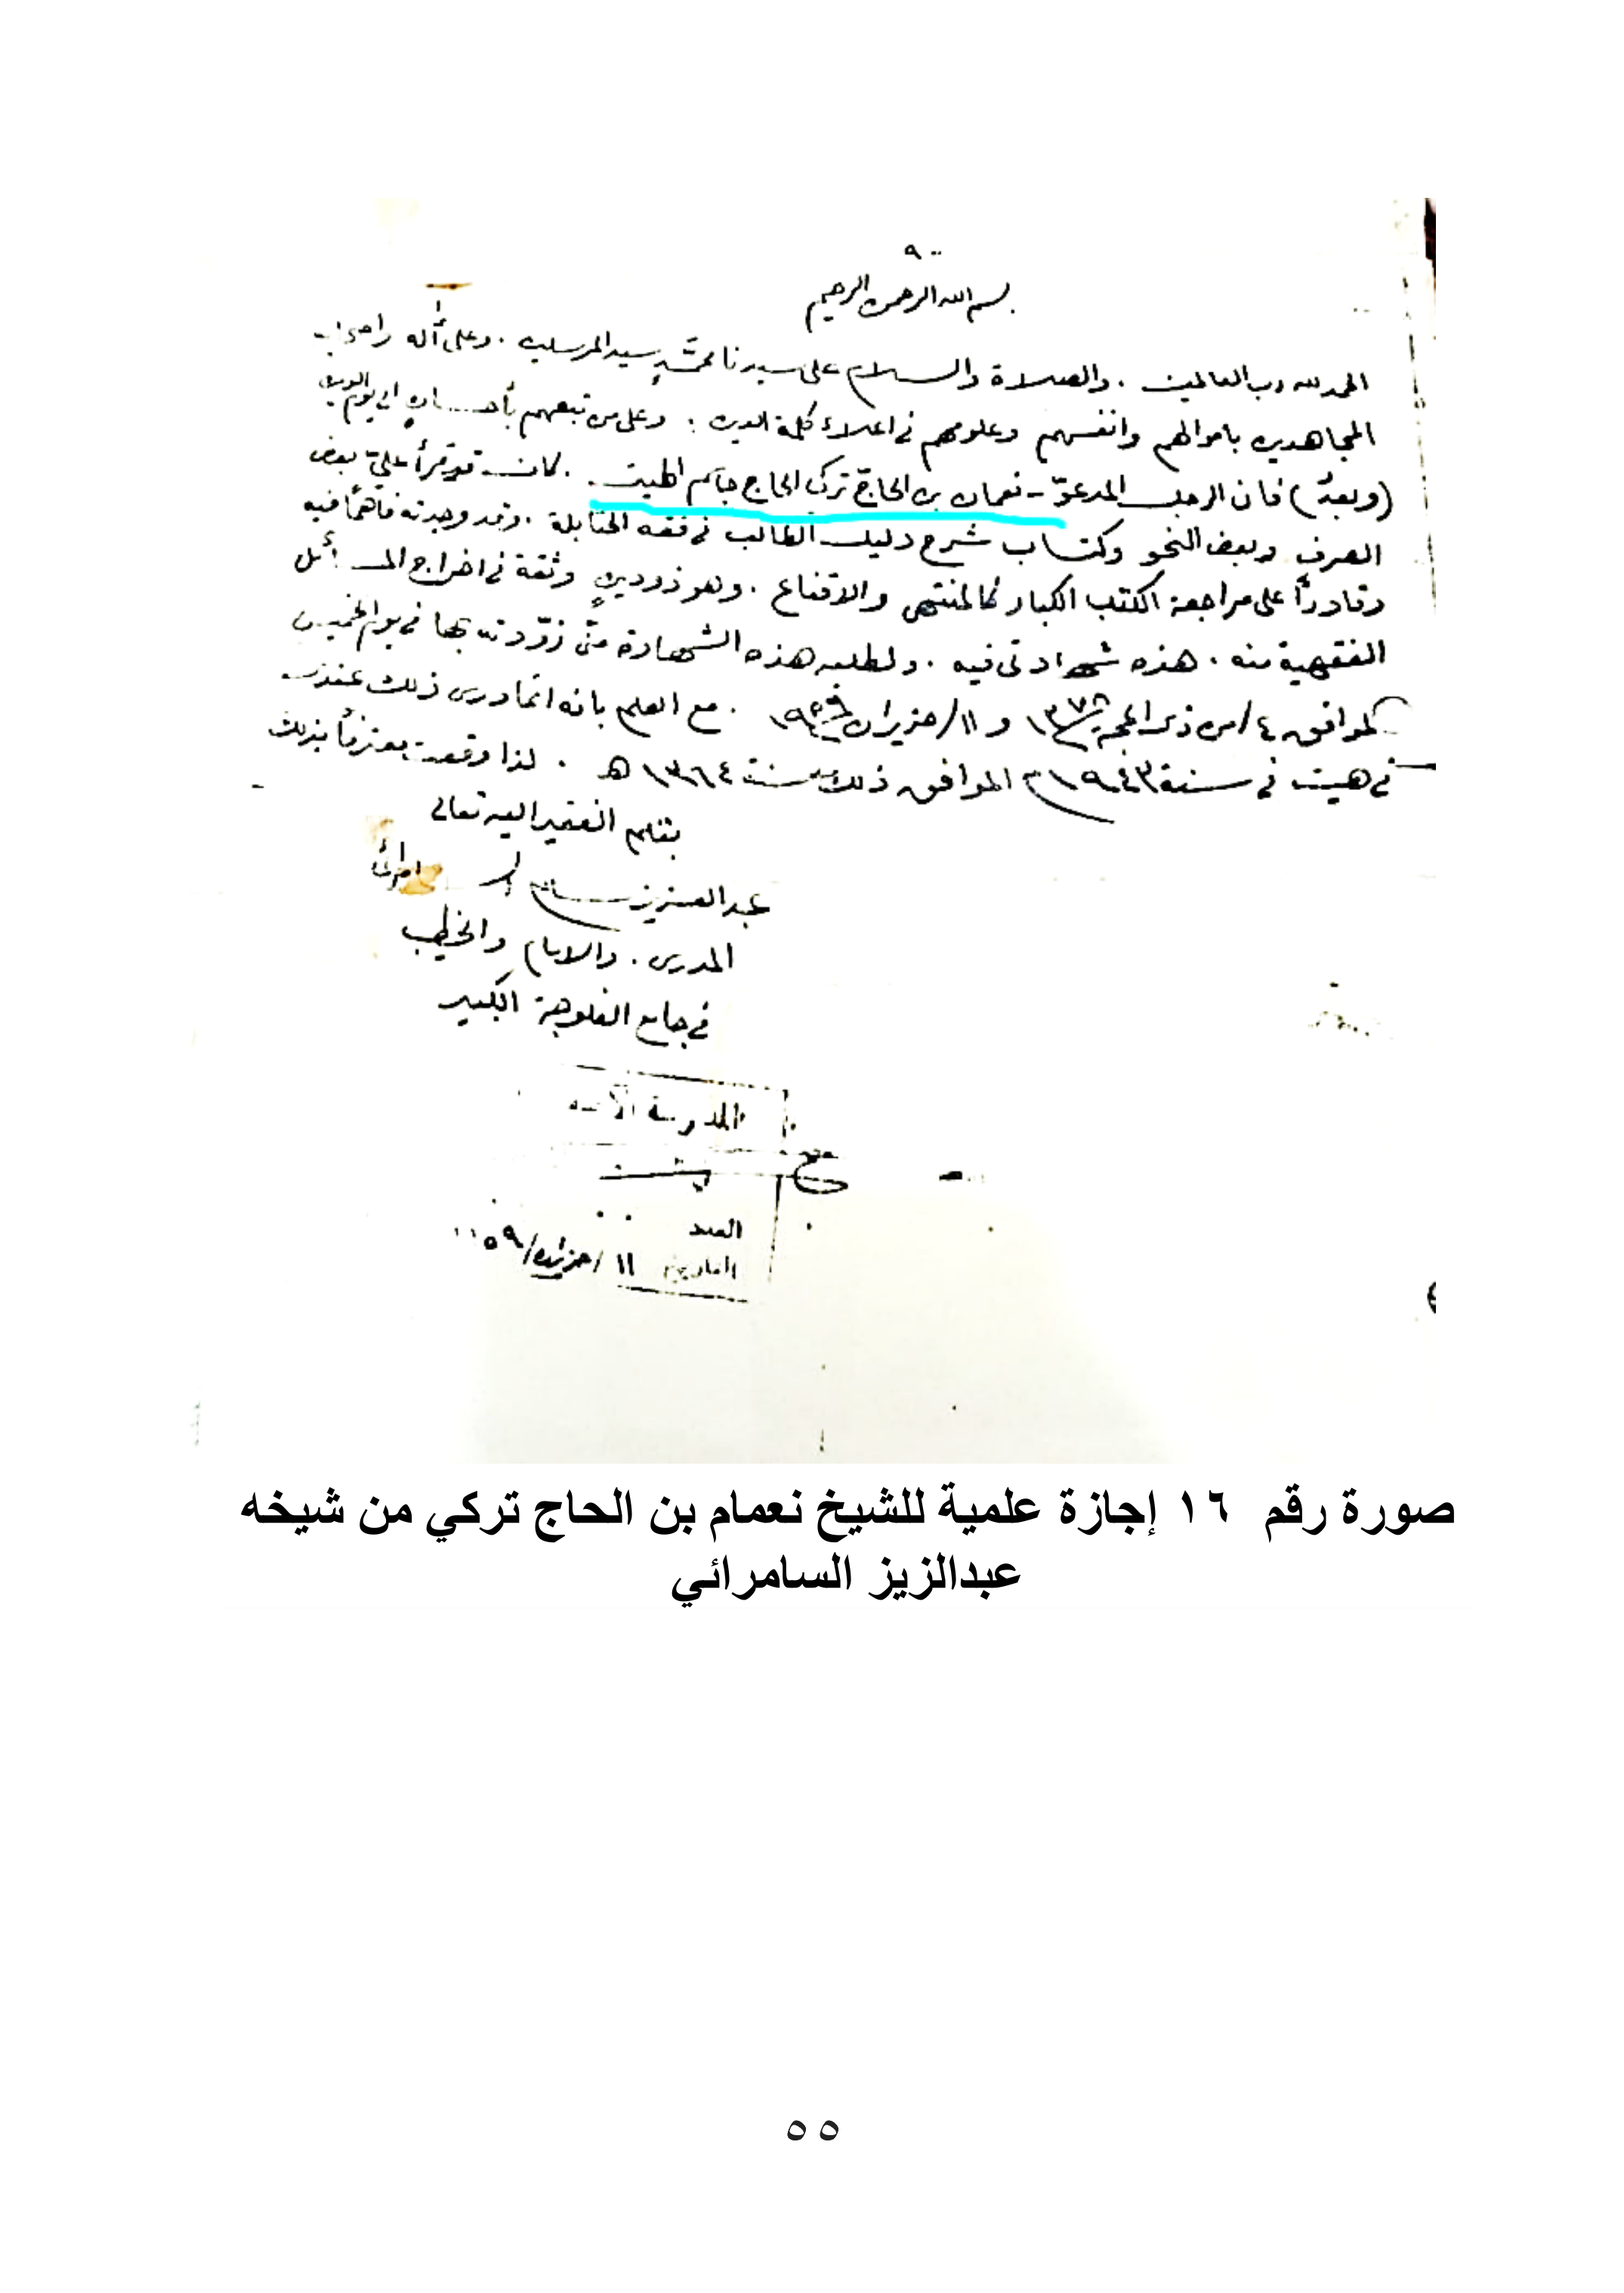 بسم الله الرحمن الرحيم
الحمد لله رب العالمين . والصلاة والسلام على سيدنا محمّدٍ سيد المرسلين . وعلى آله
المجاهدين باموالهم وانفسهم وعلومهم في اعلاء كلمة الدين . وعلى من تبعهم بأحسان الى يوم الدين
(وبعدُ) فان الرجل المدعوّ - نعمان بن الحاجّ تركي الحاج جاسم الهيتي . كان قد قرأ عليّ بعض
الصرف وبعض النحو وكتاب شرح دليل الطالب في فقه الحنابلة . وقد وجدته فاهمًا فيه
وقادراً على مراجعة الكتب الكبار كالمنتهى والاقناع . وهو ذو دينٍ وثقة في اخراج المسائل
الفقهية منه . هذه شهادتي فيه . ولطلبه هذه الشهادة منّي زوّدته بها في يوم الخميس
الموافق ٤/من ذي الحجة ١٣٧٨ و ١١/حزيران ١٩٥٩ . مع العلم بانه انما درس ذلك عندي
في هيت في سنة ١٩٤٣ الموافق ذلك سنة ١٣٦٤ هـ . لذا وقعت معترفاً بذلك
بقلم الفقير اليه تعالى
عبدالعزيز
المدرس . والامام والخطيب
في جامع الفلوجة الكبير
المدرسة
العدد
التاريخ ١١ /حزيران/٥٩
صورة رقم ١٦ إجازة علمية للشيخ نعمام بن الحاج تركي من شيخه
عبدالزيز السامرائي
٥٥